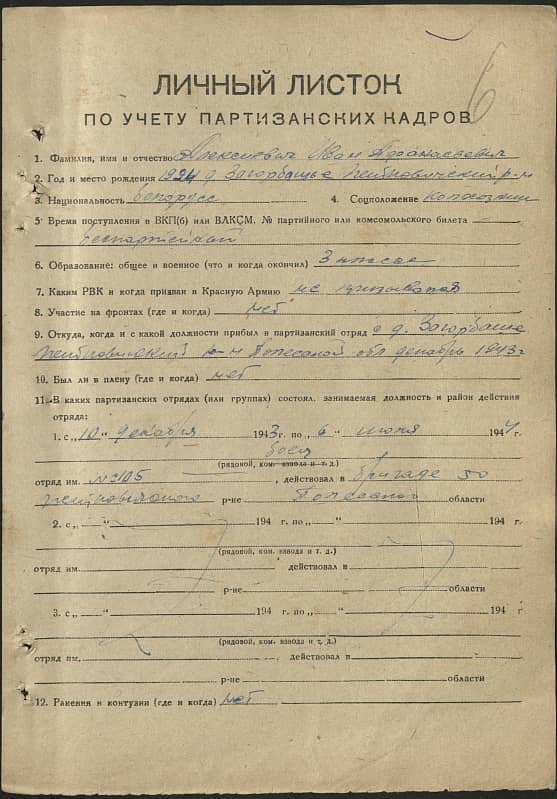 6
ЛИЧНЫЙ ЛИСТОК
ПО УЧЕТУ ПАРТИЗАНСКИХ КАДРОВ
1. Фамилия, имя и отчество Алексиевич Иван Афанасьевич
2. Год и место рождения 1924 д. Загорбашье Петриковичский р-н
3. Национальность белорусс 4. Соцположение колхозник
5 Время поступления в ВКП(б) или ВЛКСМ, № партийного или комсомольского билета
беспартейный
6. Образование: общее и военное (что и когда окончил) 3 класса
7. Каким РВК и когда призван в Красную Армию не призывался
8. Участие на фронтах (где и когда) нет
9. Откуда, когда и с какой должности прибыл в партизанский отряд с д. Загорбашье
р-н Полесской обл декабрь 1943 г
10. Был ли в плену (где и когда) нет
11. В каких партизанских отрядах (или группах) состоял, занимаемая должность и район действия
отряда:
1. с „10" декабря 1943 г. по „6" июня 1944 г.
боец
(рядовой, ком. взвода и т. д.)
отряд им. №105, действовал в бригаде 50
р-не Полесской области
2. с „ " 194 г. по „ " 194 г.
(рядовой, ком. взвода и т. д.)
отряд им. действовал в
р-не области
3. с „ " 194 г. по „ " 194 г.
(рядовой, ком. взвода и т. д.)
отряд им. , действовал в
р-не области
12. Ранения и контузии (где и когда) нет